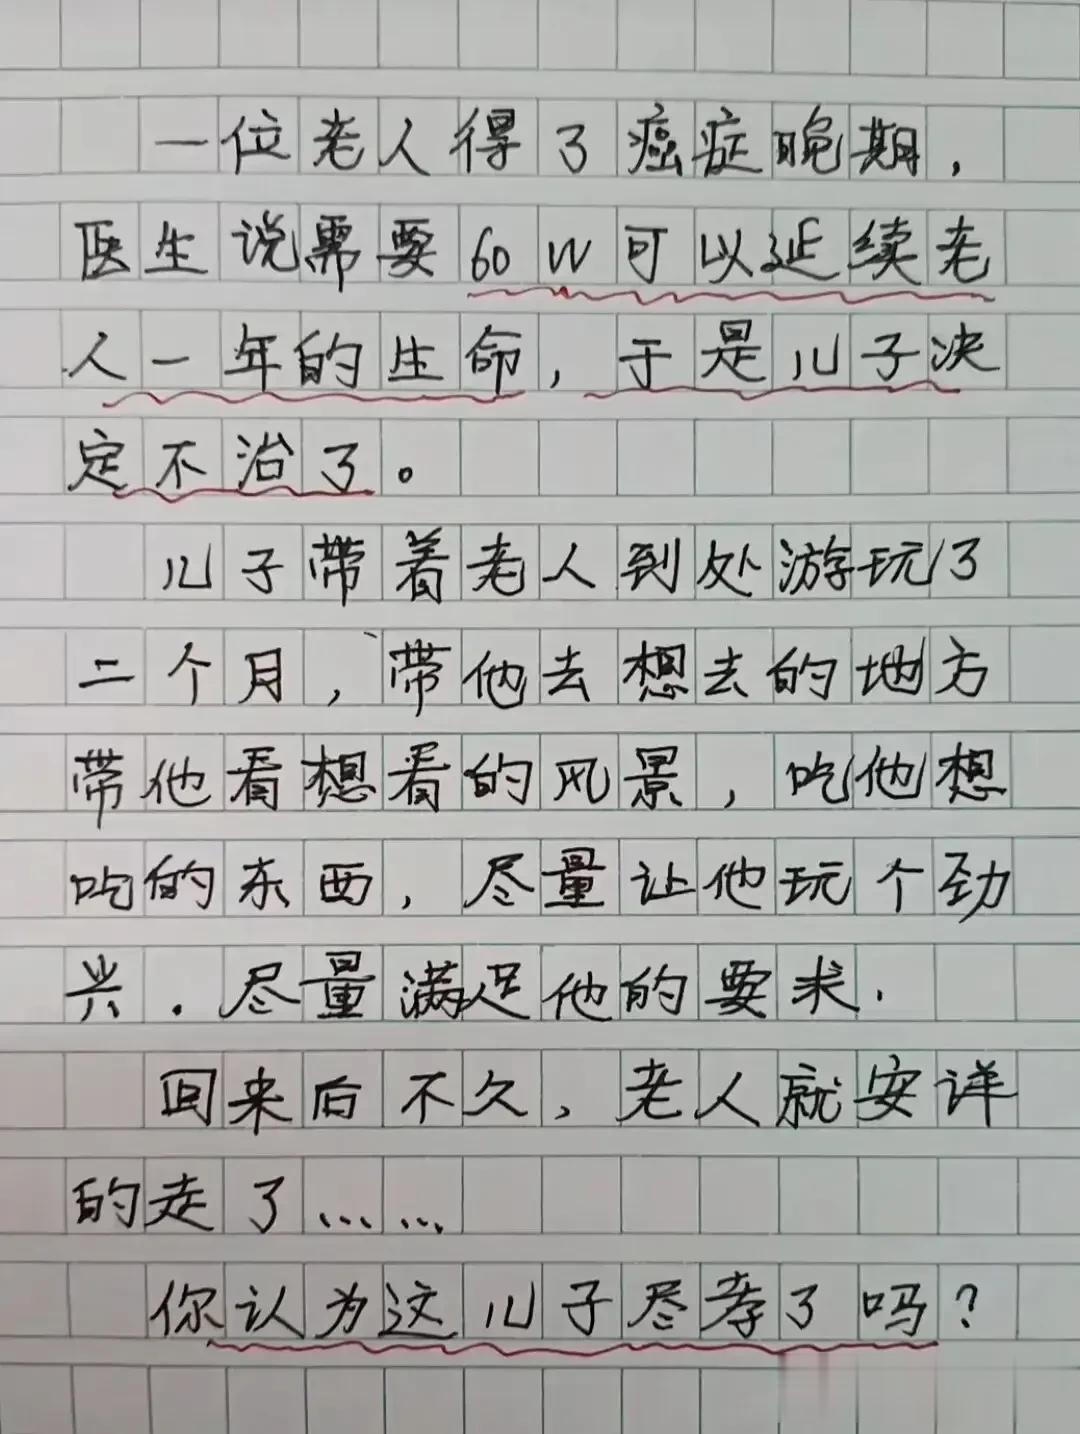 一位老人得了癌症晚期，
医生说需要60W可以延续老
人一年的生命，于是儿子决
定不治了。
儿子带着老人到处游玩了
二个月，带他去想去的地方
带他看想看的风景，吃他想
吃的东西，尽量让他玩个劲
兴．尽量满足他的要求．
回来后不久，老人就安详
的走了……
你认为这儿子尽孝了吗？